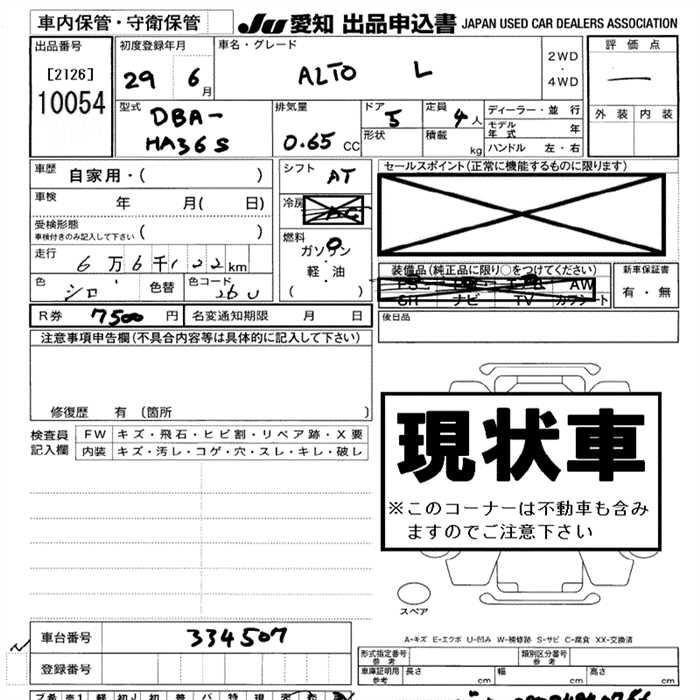 車内保管・守衛保管
JU 愛知 出品申込書 JAPAN USED CAR DEALERS ASSOCIATION
出品番号
[2126]
10054
初度登録年月
29 6月
車名・グレード
ALTO L
2WD
・
4WD
評価点
—
外装 内装
型式
DBA-
HA36S
排気量
0.65 CC
ドア
5
形状
定員
4人
積載
kg
ディーラー・並行
モデル年式 年
ハンドル 左・右
車歴
自家用・( )
車検 年 月( 日)
受検形態
車検付きのみ記入して下さい ( )
走行
6万6千122km
色
シロ
色替
色コード
26U
シフト
AT
冷房
AC
燃料
ガソリン
・
軽・油
( )
セールスポイント(正常に機能するものに限ります)
装備品(純正品に限り○をつけてください)
AW
SR ナビ TV カワシート
新車保証書
有・無
後日品
R券 7500円
名変通知期限 月 日
注意事項申告欄(不具合内容等は具体的に記入して下さい)
修復歴 有(箇所 )
検査員
記入欄
FW キズ・飛石・ヒビ割・リペア跡・X要
内装 キズ・汚レ・コゲ・穴・スレ・キレ・破レ
現状車
※このコーナーは不動車も含み
ますのでご注意下さい
スペア
A-キズ E-エクボ U-凹み W-補修跡 S-サビ C-腐食 XX-交換済
車台番号 334507
登録番号
形式指定番号
参考
類別区分番号
参考
車庫証明用
参考
長さ cm
幅 cm
高さ cm